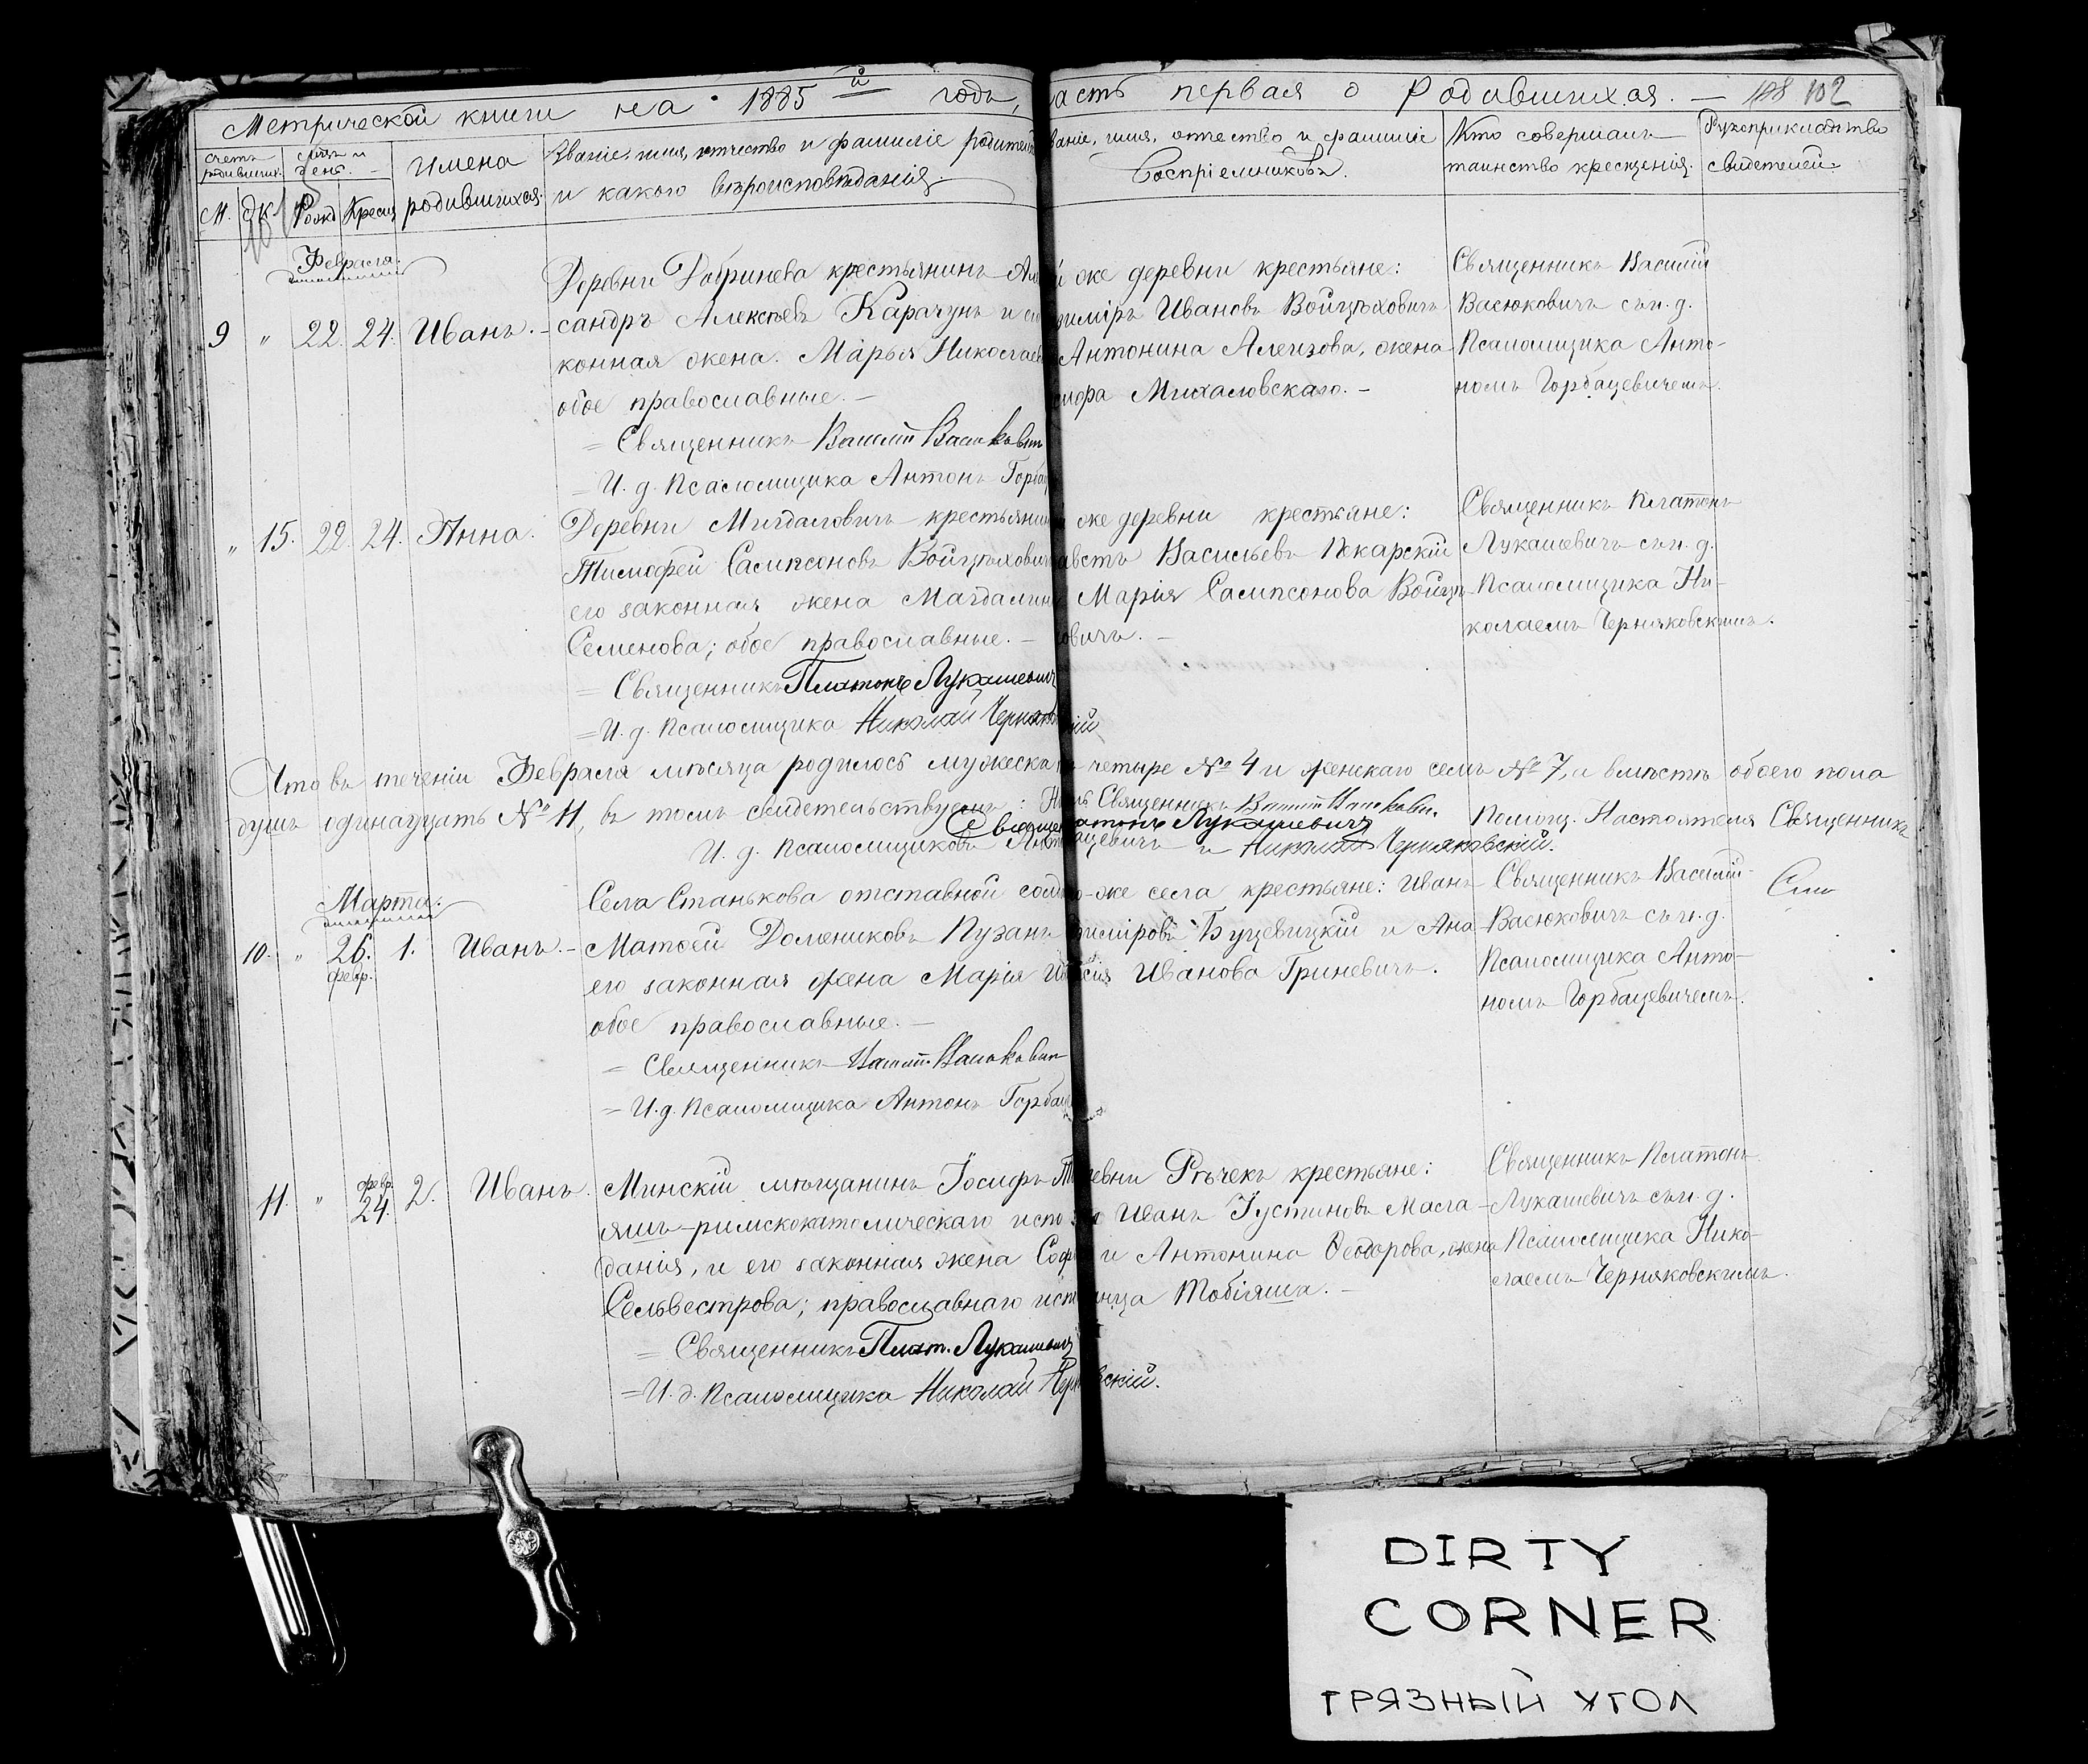 Метрической книги на 1885й годъ, часть первая о родившихся. — 102
Счетъ родившихся.
Мѣсяцъ и день.
Имена родившихся.
Званіе, имя, отчество и фамилія родителей
и какого вѣроисповѣданія.
Званіе, имя, отчество и фамилія
Воспріемниковъ.
Кто совершалъ
таинство крещенія.
Рукоприкладство
свидетелей.
М. Ж. Рожд. Крещ.
Февраля.
9 " 22. 24. Иванъ.
Деревни Добринева крестьянинъ Але
сандръ Алексѣевъ Карачунъ и
конная жена Марья Николаев
обое православные. —
= Священникъ Василій Васюкович
= И. д. Псаломщика Антонъ Горба
же деревни крестьяне:
димiръ Ивановъ Войцѣховичъ
Антонина Алеизова, жена
Михаловскаго. —
Священникъ Василій
Васюковичъ съ и. д.
Псаломщика Анто-
номъ Горбацевичемъ.
" 15. 22. 24. Анна.
Деревни Мигдаловичъ крестьянин
Тимофей Сампсоновъ Войцѣхович
его законная жена Магдалина
Семенова; обое православные. —
= Священникъ Платонъ Лукашевичъ
= И. д. Псаломщика Николай Черняковскій
же деревни крестьяне:
Васильевъ Пекарскій
Марія Сампсонова Войцѣ-
ховичъ. —
Священникъ Платонъ
Лукашевичъ съ и. д.
Псаломщика Ни-
колаемъ Черняковскимъ.
Что въ теченіи Февраля мѣсяца родилось мужеска четыре № 4 и женскаго семь № 7, а вмѣстѣ обоего пола
душъ одинадцать № 11, въ томъ свидетельствуемъ: Священникъ Василій Васюкович.
Священ Платонъ Лукашевичъ Помощ. Настоятеля Священникъ
И. д. Псаломщиковъ Антонъ Горбацевичъ и Николай Черняковскій.
Марта.
10. " 26. февр. 1. Иванъ. —
Села Станькова отставной солд
Матѳей Домениковъ Пузанъ
его законная жена Марія
обое православные. —
= Священникъ Василій Васюкович
= И. д. Псаломщика Антонъ Горбаце
же села крестьяне: Иванъ
Буцевицкій и Ана
Иванова Гриневичъ.
Священникъ Василій
Васюковичъ съ и. д.
Псаломщика Анто-
номъ Горбацевичемъ.
11. " февр. 24. 2. Иванъ.
Минскій мѣщанинъ Іосифъ Тоб
яшъ римскокатолическаго испо
данія, и его законная жена Соф
Сельвестрова; православнаго исп
= Священникъ Плат. Лукашевичъ
= И. д. Псаломщика Николай Черняковскій.
Рѣчекъ крестьяне:
Иванъ Іустиновъ Масла-
и Антонина Ѳеодорова, жена
Тобіяша. —
Священникъ Платонъ
Лукашевичъ съ и. д.
Псаломщика Нико-
лаемъ Черняковскимъ.
DIRTY
CORNER
ГРЯЗНЫЙ УГОЛ